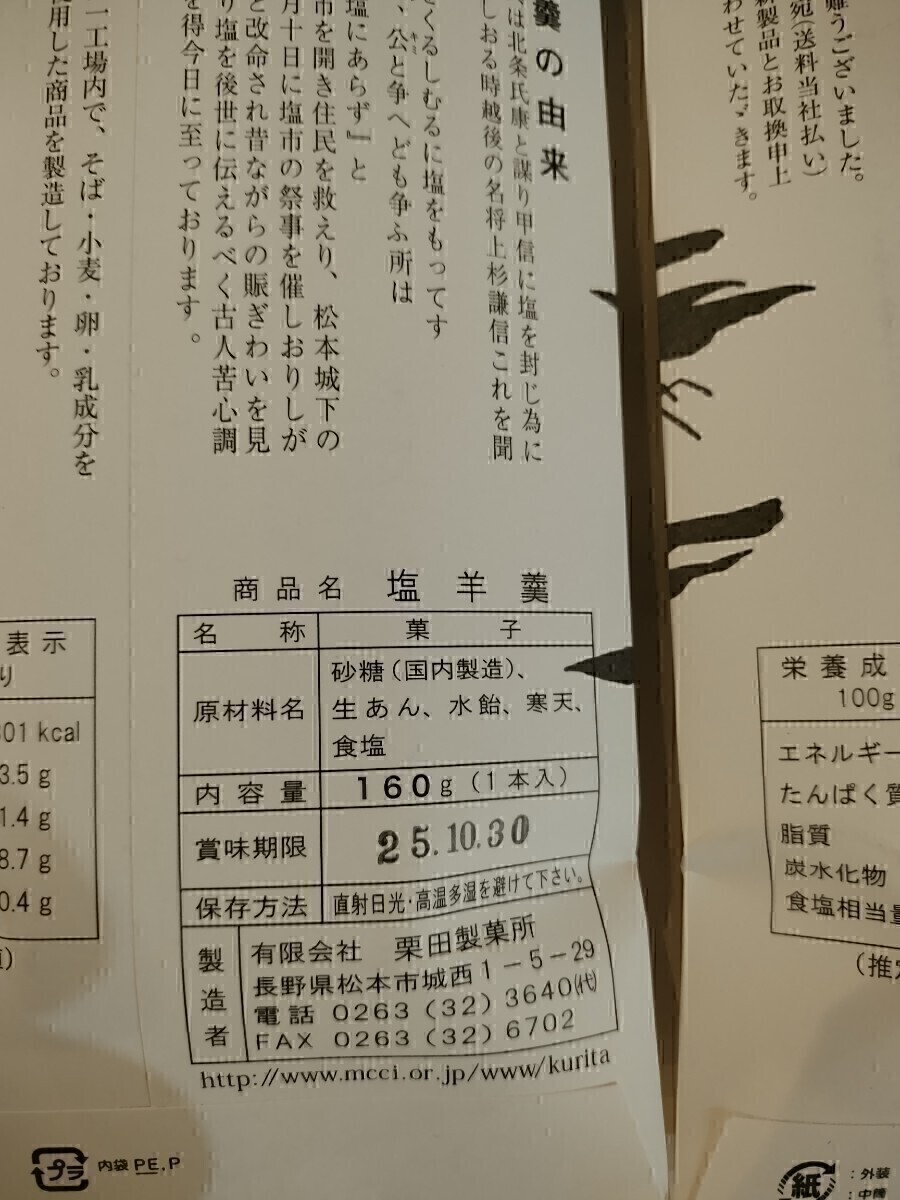 難うございました。
宛(送料当社払い)
新製品とお取換申上
わせていたゞきます。
羹の由来
は北条氏康と謀り甲信に塩を封じ為に
しおる時越後の名将上杉謙信これを聞
くるしむるに塩をもってす
、公と争へども争ふ所は
塩にあらず』と
市を開き住民を救えり、松本城下の
月十日に塩市の祭事を催しおりしが
と改命され昔ながらの賑ぎわいを見
り塩を後世に伝えるべく古人苦心調
を得今日に至っております。
一工場内で、そば・小麦・卵・乳成分を
使用した商品を製造しております。
商品名 塩羊羹
名称 菓子
原材料名 砂糖(国内製造)、
生あん、水飴、寒天、
食塩
内容量 160g(1本入)
賞味期限 25.10.30
保存方法 直射日光・高温多湿を避けて下さい。
製造者
有限会社 栗田製菓所
長野県松本市城西1-5-29
電話 0263(32)3640(代)
FAX 0263(32)6702
http://www.mcci.or.jp/www/kurita
表示
り
01 kcal
3.5 g
1.4 g
8.7 g
0.4 g
栄養成
100g
エネルギー
たんぱく質
脂質
炭水化物
食塩相当量
(推定
プラ 内袋 PE,P
紙 :外装
:中